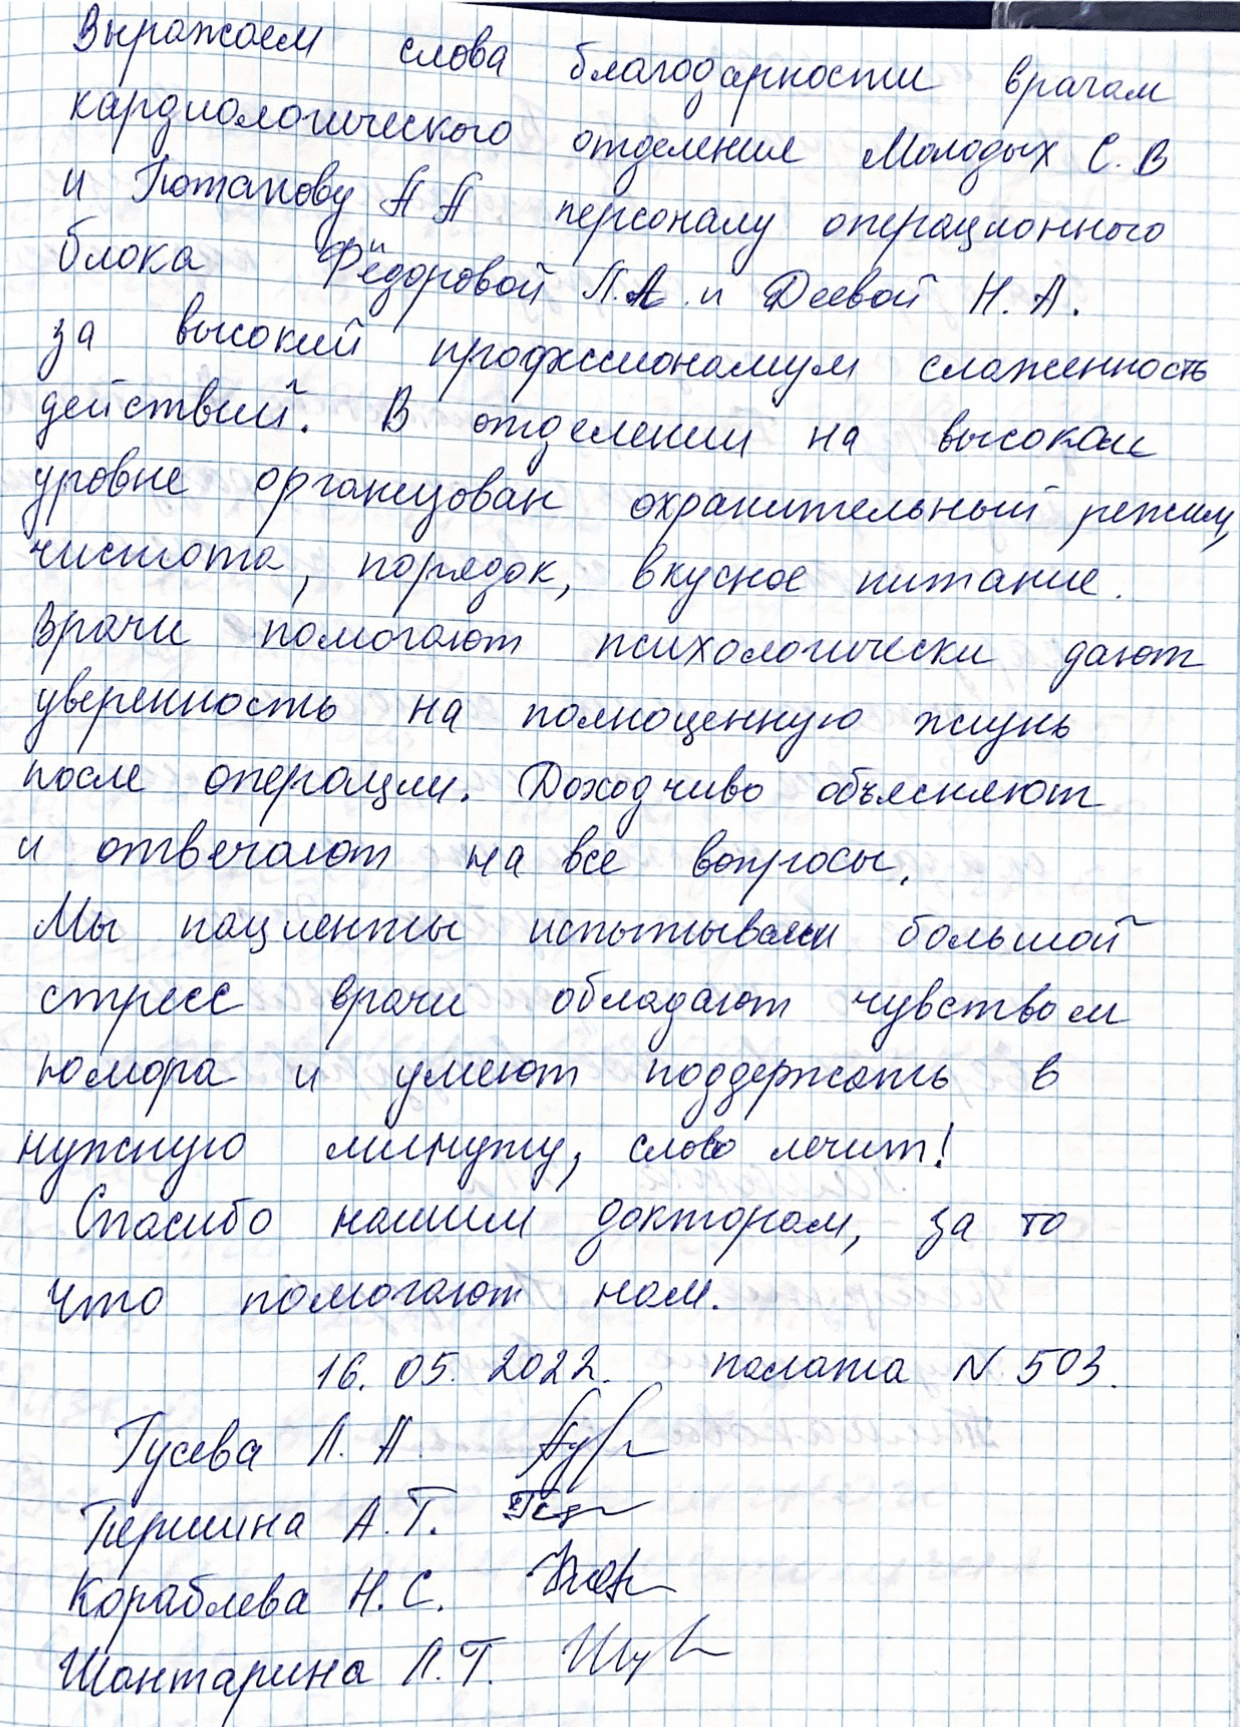 Выражаем слова благодарности врачам
кардиологического отделения Молодых С. В
и Потапову А А персоналу операционного
блока Фёдоровой Л.А. и Деевой Н. А.
за высокий профессионализм слаженность
действий. В отделении на высоком
уровне организован охранительный режим,
чистота, порядок, вкусное питание.
Врачи помогают психологически дают
уверенность на полноценную жизнь
после операции. Доходчиво объясняют
и отвечают на все вопросы.
Мы пациенты испытываем большой
стресс врачи обладают чувством
юмора и умеют поддержать в
нужную минуту, слово лечит!
Спасибо нашим докторам, за то
что помогают нам.
16. 05. 2022. палата N 503.
Гусева Л. А.
Першина А. Т.
Кораблева Н. С.
Шантарина Л. Т.